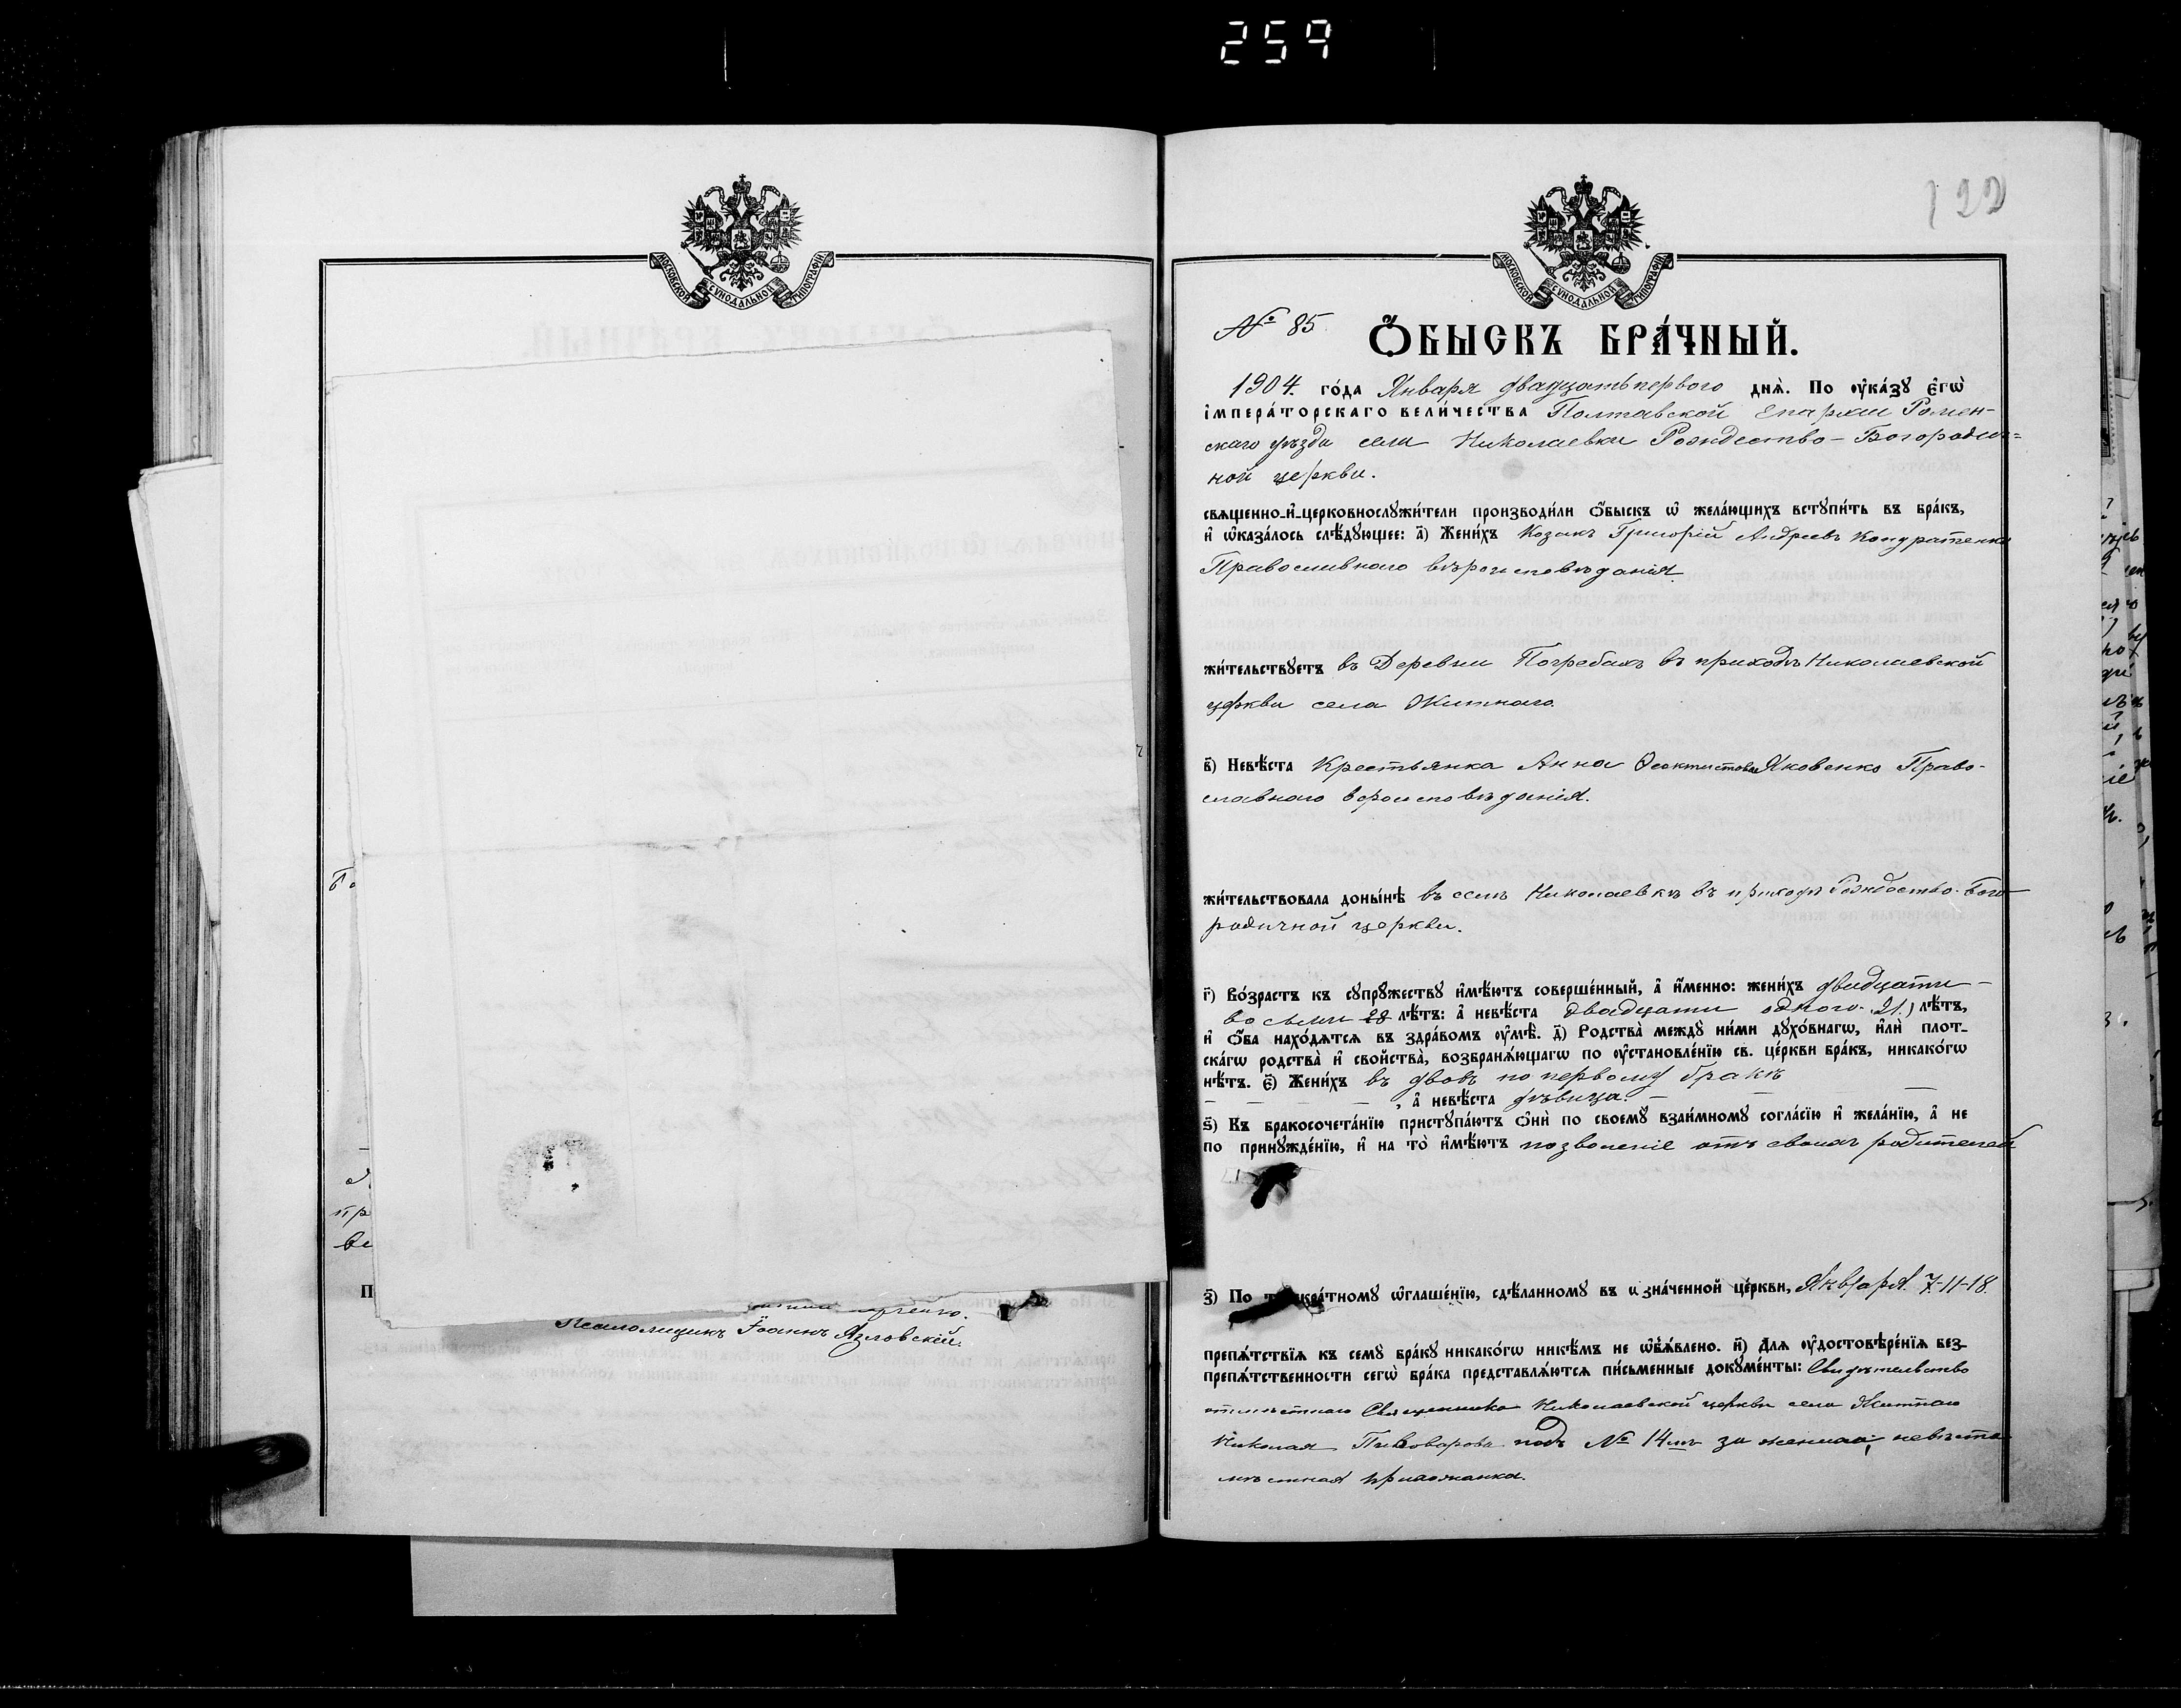 259
МОСКОВСКОЙ СѴНОДАЛЬНОЙ ТИПОГРАФІИ
Псаломщикъ Іоаннъ Язловскій.
122
МОСКОВСКОЙ СѴНОДАЛЬНОЙ ТИПОГРАФІИ
№ 85
Ѻ҆БЫСКЪ БРА́ЧНЫЙ.
1904. го́да Января двадцать перваго днѧ̀. По ᲂу҆ка́зꙋ є҆гѡ̀
і҆мпера́торскаго вели́чества Полтавской Епархіи Ромен-
скаго уѣзда села Николаевки Рождество-Богородич-
ной церкви.
свѧщенно-и҆-церковнослꙋжи́тели производи́ли ѻ҆́быскъ ѡ҆ жела́ющихъ встꙋпи́ть въ бра́къ,
и҆ ѡ҆каза́лось слѣ́дꙋющее: а҃) Жени́хъ Козакъ Григорій Андреевъ Кондратенко
Православнаго вѣроисповѣданія
жи́тельствꙋетъ въ Деревни Погребахъ въ приходѣ Николаевской
церкви села Житнаго.
в҃) Невѣ́ста Крестьянка Анна Ѳеоктистова Яковенко Право-
славнаго вероисповѣданія.
жи́тельствовала доны́нѣ въ селѣ Николаевкѣ въ приходѣ Рождество-Бого-
родичной церкви.
г҃) Во́зрастъ къ сꙋпрꙋ́жествꙋ и҆мѣ́ютъ соверше́нный, а҆ и҆́менно: жени́хъ двадцати-
восьми 28 лѣ́тъ: а҆ невѣ́ста двадцати одного. 21.) лѣ́тъ,
и҆ ѻ҆́ба нахо́дѧтсѧ въ здра́вомъ ᲂу҆мѣ̀. д҃) Родства̀ междꙋ̀ ни́ми дꙋхо́внагѡ, и҆лѝ плот-
ска́гѡ родства̀ и҆ свойства̀, возбранѧ́ющагѡ по ᲂу҆становле́нїю св. це́ркви бра́къ, никако́гѡ
нѣ́тъ. є҃) Жени́хъ въ двовъ по первому бракѣ
, а҆ невѣ́ста дѣвица.
ѕ҃) Къ бракосочета́нїю пристꙋпа́ютъ ѻ҆нѝ по своемꙋ̀ взаи́мномꙋ согла́сїю и҆ жела́нїю, а҆ не
по принꙋжде́нїю, и҆ на то̀ и҆мѣ́ютъ позволеніе отъ своихъ родителей
з҃) По кра́тномꙋ ѡ҆глаше́нїю, сдѣ́ланномꙋ въ ѡзна́ченной це́ркви, Января 7-11-18.
препѧ́тствїѧ къ семꙋ̀ бра́кꙋ никако́гѡ никѣ́мъ не ѡ҆б̾ѧ́влено. и҃) Длѧ ᲂу҆достовѣре́нїѧ без-
препѧ́тственности сегѡ̀ бра́ка представлѧ́ютсѧ пи́сьменные докꙋме́нты: Свидѣтельство
отмѣстнаго Священника Николаевской церкви села Житнаго
Николая Пивоварова подъ № 14мъ за жениха; невѣста
мѣстная прихожанка.